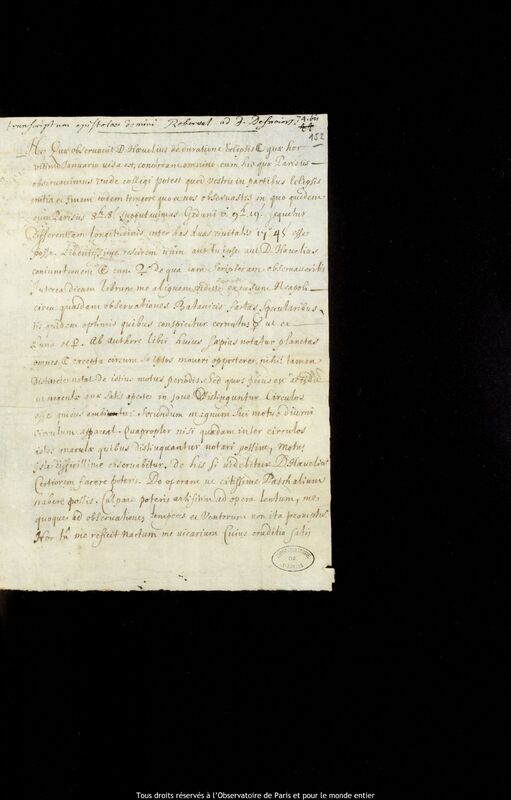 transcriptum epistolae domini Roberval ad D. Desnoiers. 74. bis
44
152
Hec Quæ observavit D. Hævelius de duratione Eclipsis ☾ quæ hor
vltimo Ianuario visa est, concordant omnino cum his quæ Parisiis
observavimus vnde colligi potest quod vestris in partibus Eclipsis
initia et finem eodem tempore quo nos observastis in quo quidem
cum Parisiis 8. h. 8. supputavimus Gedani v. 9. h. 19. sequetur
Differentiam longitudinis inter has duas civitates 17° 45' esse
posse. Libentissime rescirem num aut tu ipse aut D. Hævelius
coniunctionem ☾ cum ♀ de qua iam scripseram observaveritis
Interea dicam librum me aliquem vidisse excusum Neapoli
circa quasdam observationes factas specularibus
iis quidem optimis quibus conspicitur cornutus ☿ ut ea
Luna et ♀. Ab authore libri huius sæpius notatur planetas
omnes ☾ excepta circum se ipsos moveri opportere, nihil tamen
distincte notat de istius motus periodis. Sed quos prius ex
ut maculæ quæ satis aperte in Jove distinguntur Circulos
esse quibus ambiuntur secundum magnum sui motus diurni
circulum apparet. Quapropter nisi quædam inter circulos
istos maculæ quibus distinguantur notari possint, motus
iste difficillime observabitur. De his si videbitur D. Hævelium
Certiorem facere poteris. Do operam ut citissime Paschalium
habere possis. Culpare poteris artificem ad opera lentum, me
quoque ad observationes tempus et Ventorum non ita
Hoc tn̄ me reficit nactum me vicarium Cuius eruditio satis
OBSERVATOIRE
DE
PARIS
Tous droits réservés à l'Observatoire de Paris et pour le monde entier